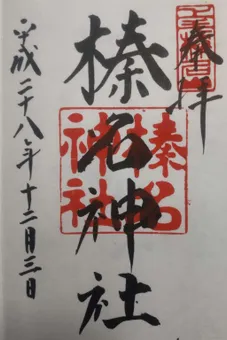 奉拝
榛名神社
榛名
神社
平成二十八年十二月三日